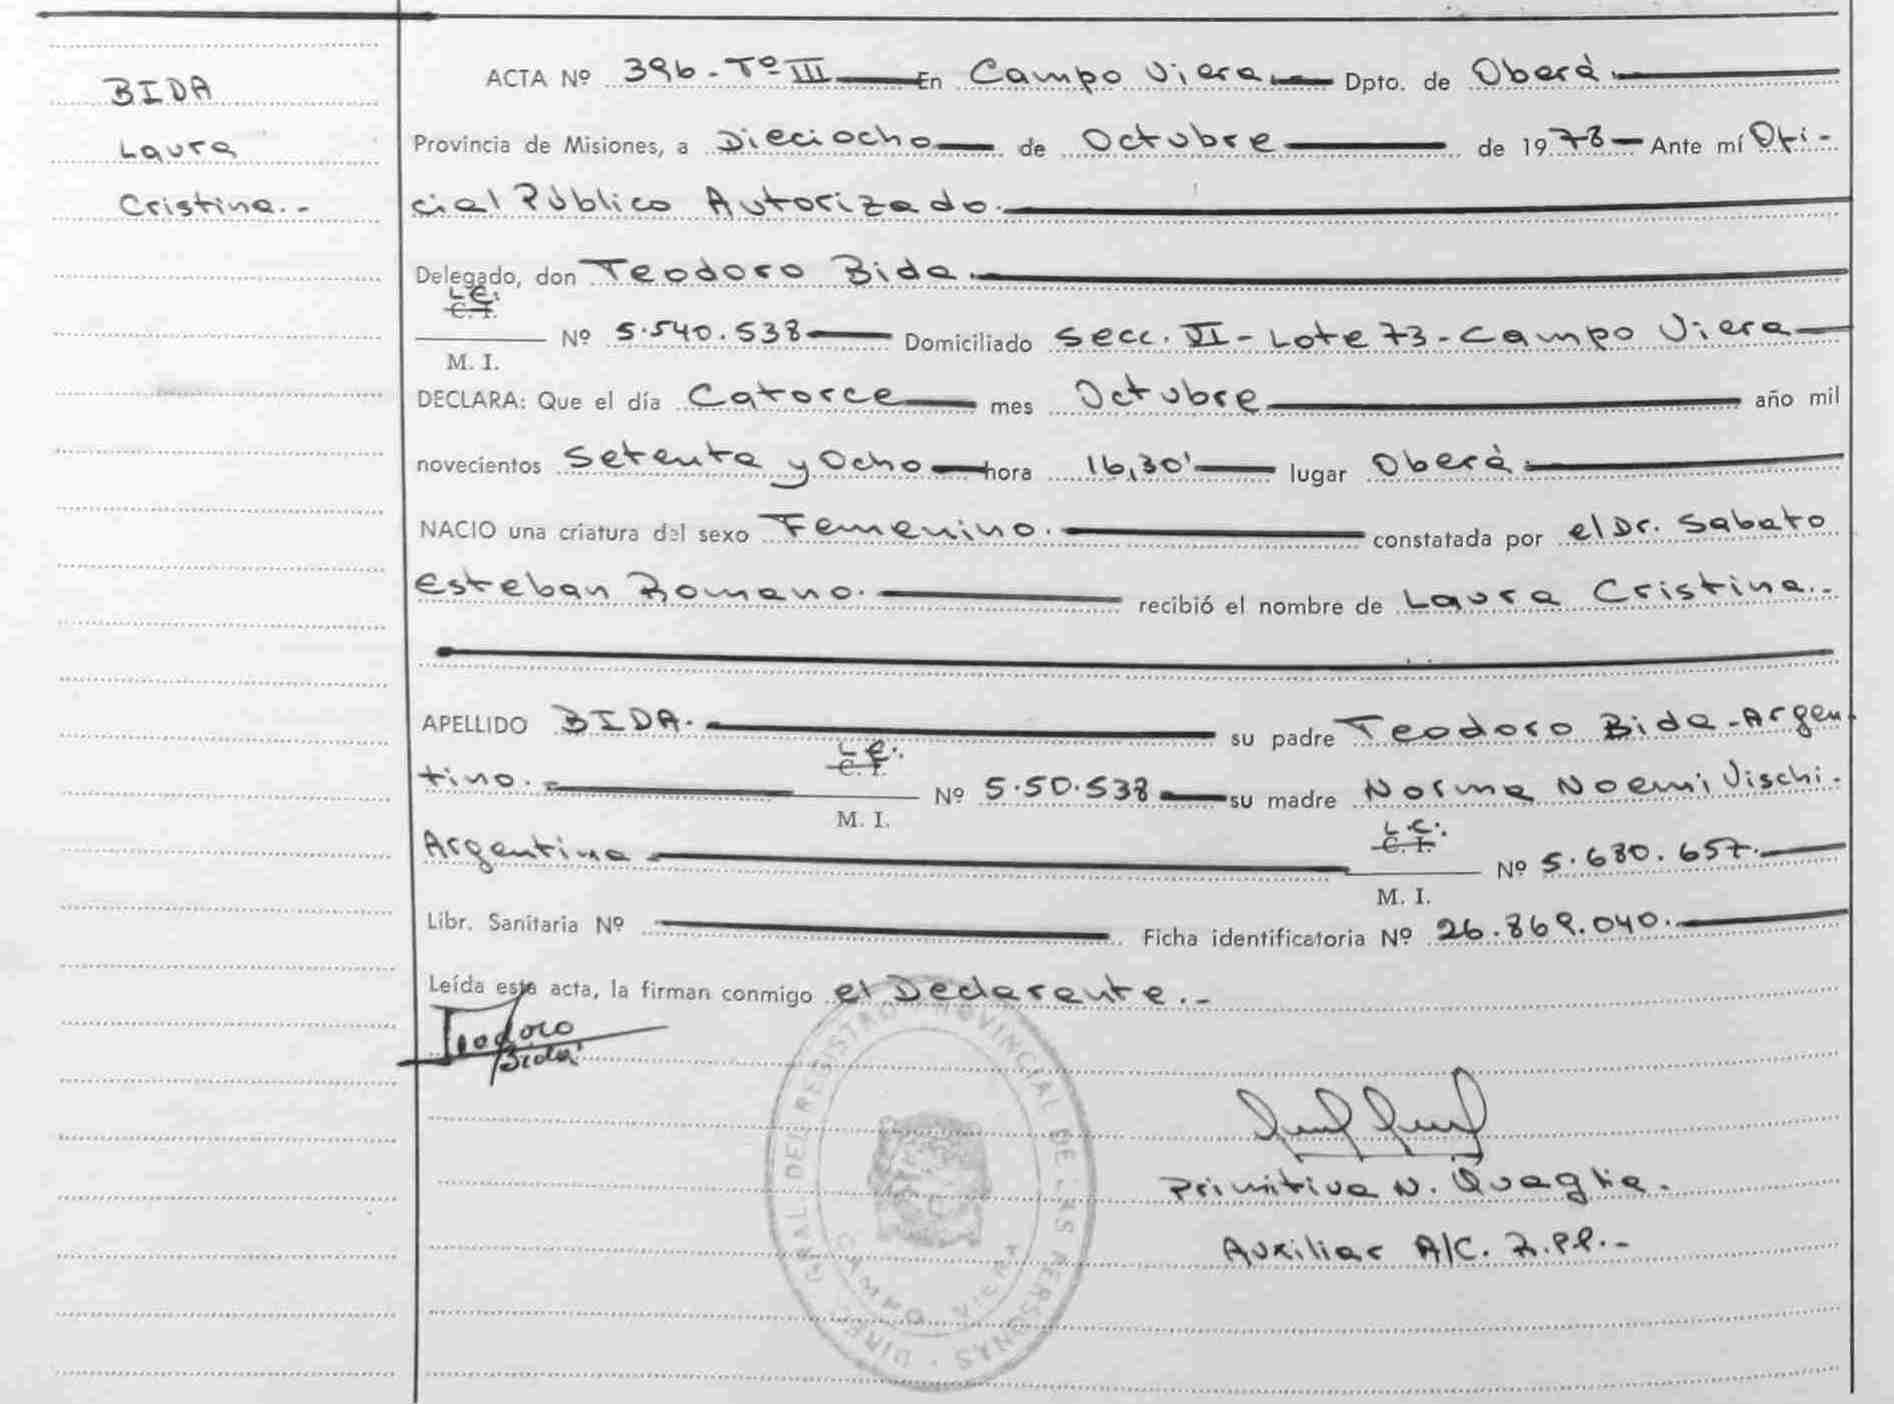 BIDA
Laura
Cristina.-
ACTA Nº 396 - Tº III En Campo Viera Dpto. de Oberá.
Provincia de Misiones, a Dieciocho de Octubre de 1978 Ante mí Ofi-
cial Público Autorizado.
Delegado, don Teodoro Bida.
L.E.
C. I.
M. I.
Nº 5.540.538 Domiciliado Secc. VI - Lote 73 - Campo Viera
DECLARA: Que el día Catorce mes Octubre año mil
novecientos Setenta y Ocho hora 16,30' lugar Oberá.
NACIO una criatura del sexo Femenino. constatada por el Dr. Sabato
Esteban Romano. recibió el nombre de Laura Cristina.-
APELLIDO BIDA. su padre Teodoro Bida - Argen-
tino. L.E. C. I. M. I. Nº 5.50.538 su madre Norma Noemi Vischi.
Argentina L.C. C. I. M. I. Nº 5.680.657.
Libr. Sanitaria Nº Ficha identificatoria Nº 26.869.040.
Leída esta acta, la firman conmigo el Declarante.-
Teodoro
Bida
DIREC. GRAL DEL REGISTRO PROVINCIAL DE LAS PERSONAS
CAMPO VIERA
Primitiva N. Quaglia.
Auxiliar A/C. R.P.P.-